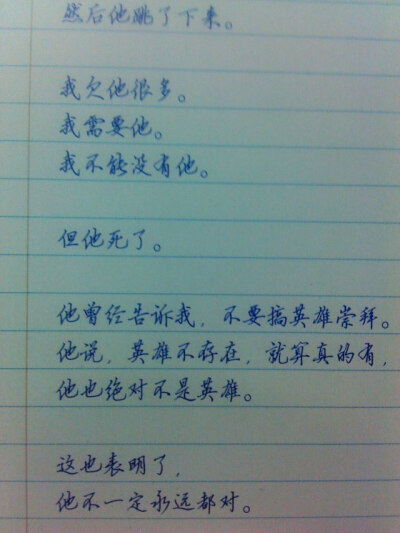 然后他跳了下来。
我欠他很多。
我需要他。
我不能没有他。
但他死了。
他曾经告诉我，不要搞英雄崇拜。
他说，英雄不存在，就算真的有，
他也绝对不是英雄。
这也表明了，
他不一定永远都对。